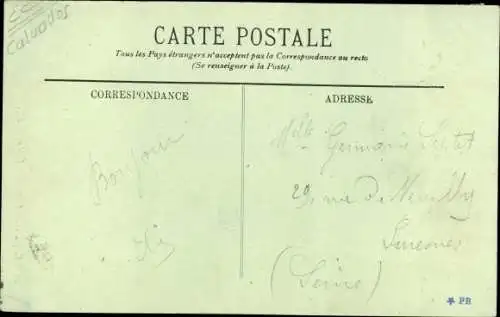 Calvados
CARTE POSTALE
Tous les Pays étrangers n'acceptent pas la Correspondance au recto
(Se renseigner à la Poste).
CORRESPONDANCE
ADRESSE
Bonjour
Melle Germaine
29 rue de Neuilly
Suresnes
(Seine)
PB